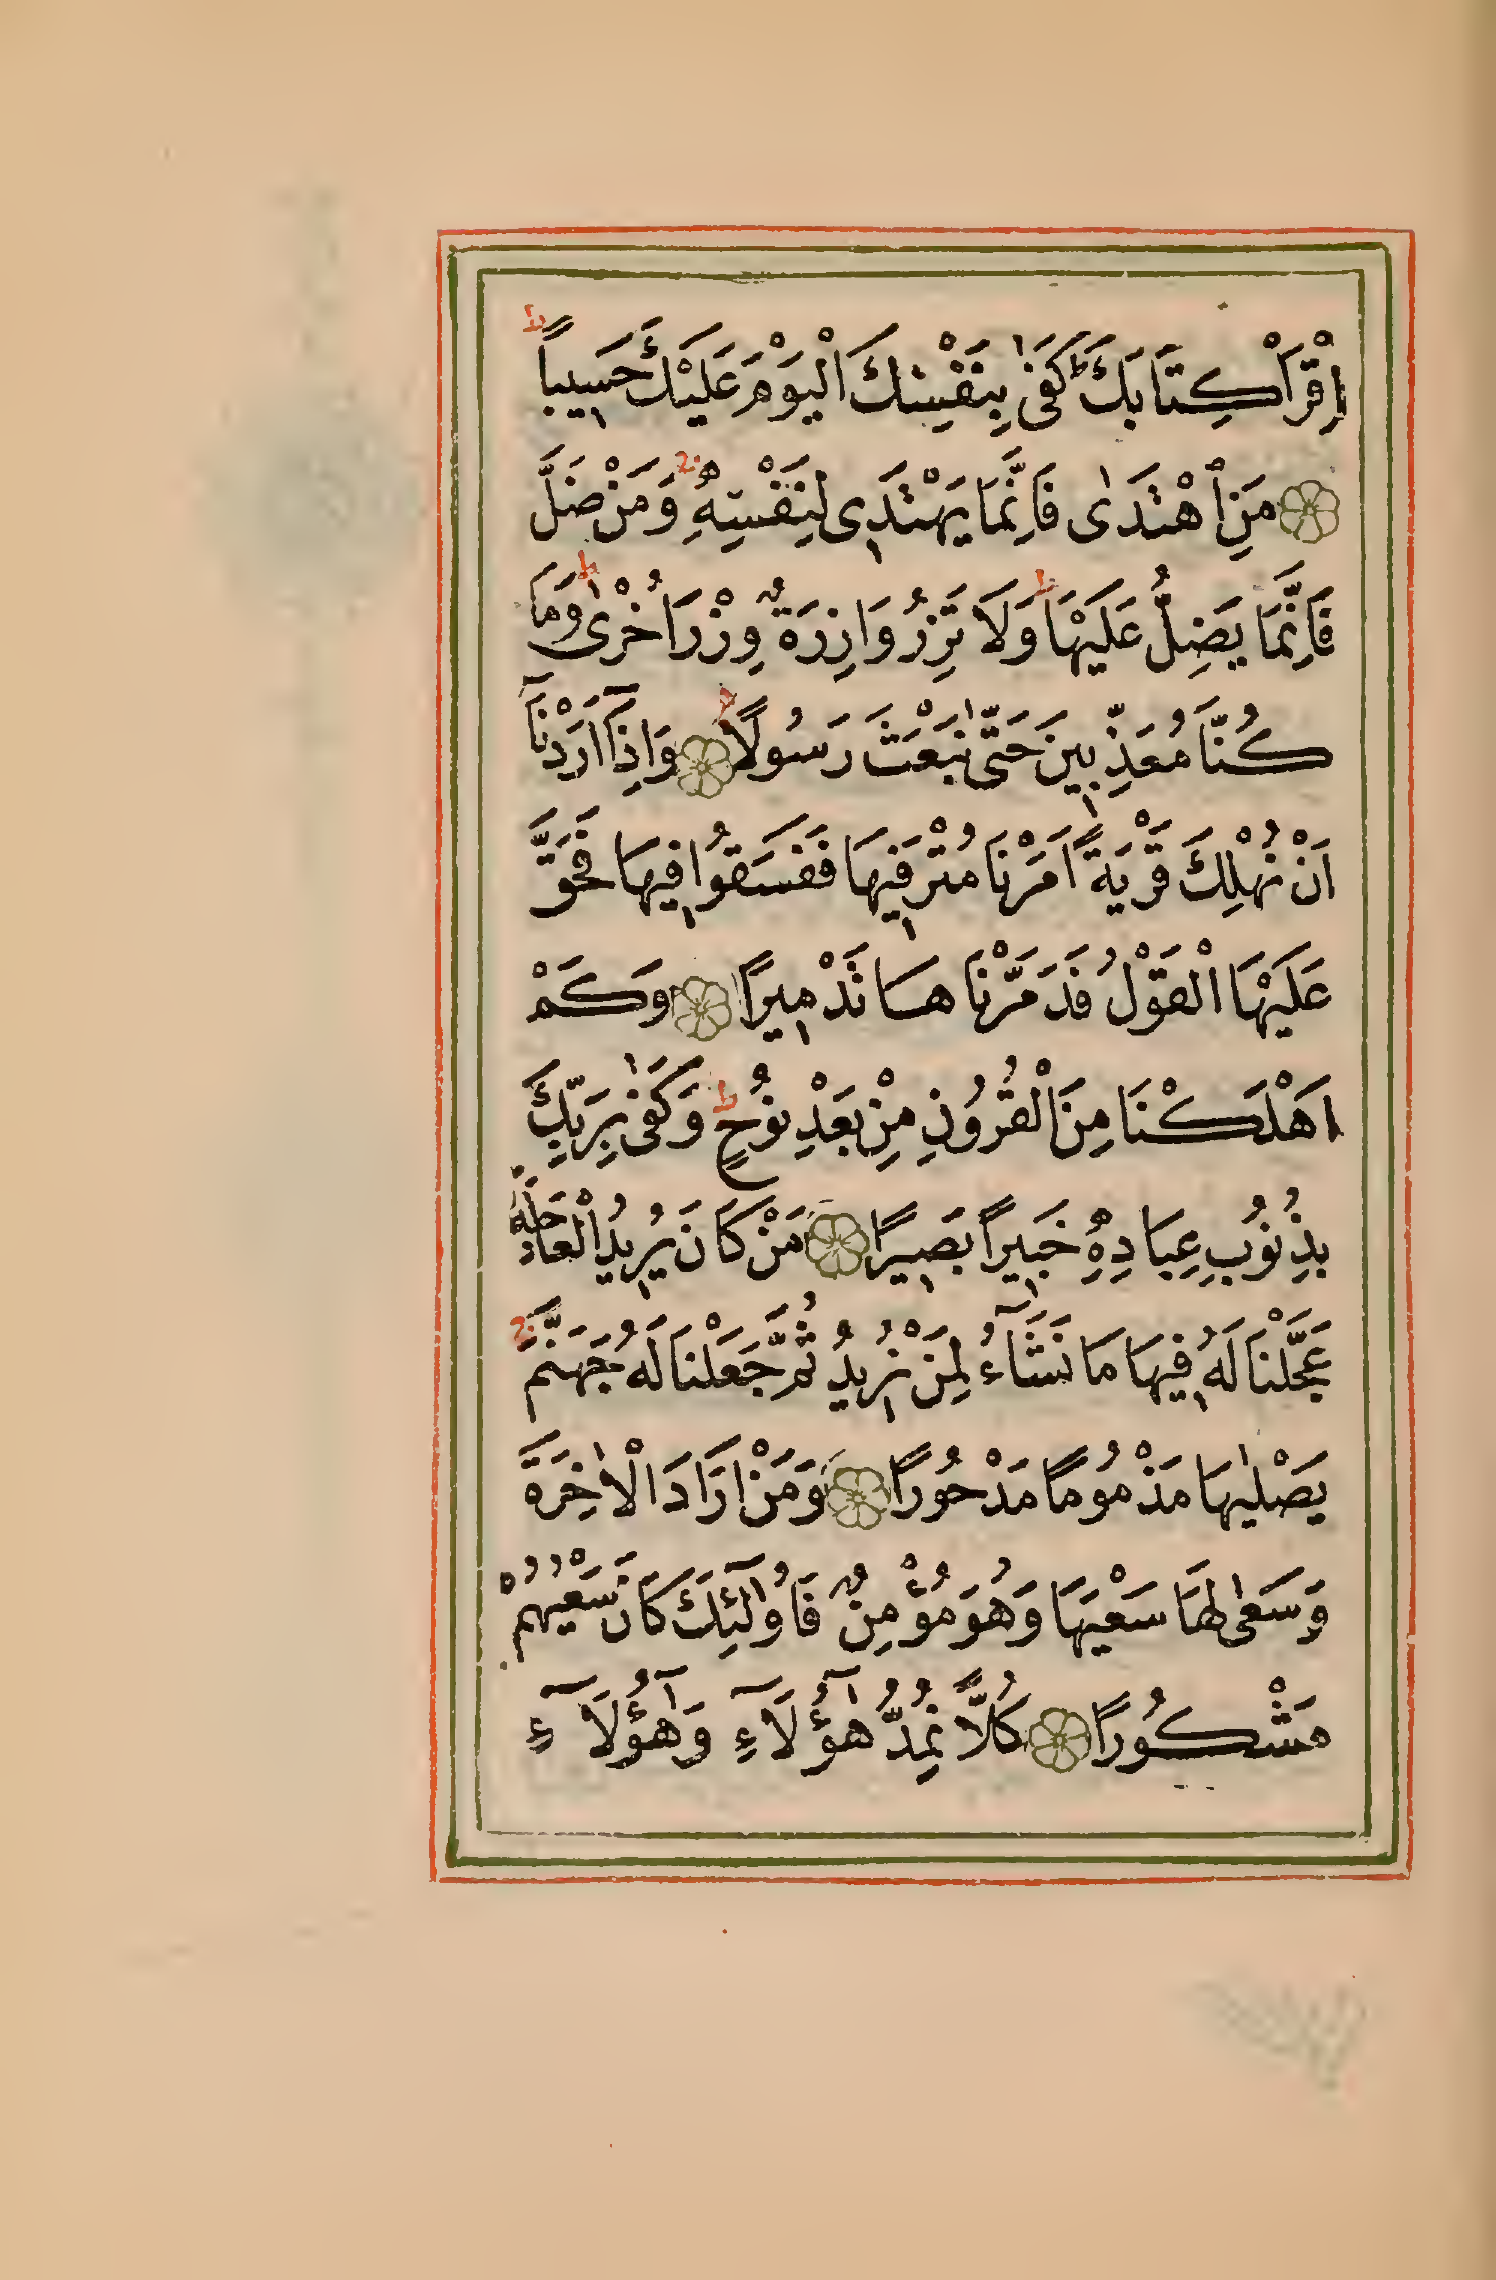 اِقْرَأْ كِتَابَكَ ؕ كَفٰى بِنَفْسِكَ الْيَوْمَ عَلَيْكَ حَسِيبًا ط
مَنِ ٱهْتَدٰى فَاِنَّمَا يَهْتَدِى لِنَفْسِهٖ ۚ وَمَنْ ضَلَّ
فَاِنَّمَا يَضِلُّ عَلَيْهَا ط وَلَا تَزِرُ وَازِرَةٌ وِزْرَ اُخْرٰى ط وَمَا
كُنَّا مُعَذِّبِينَ حَتّٰى نَبْعَثَ رَسُولًا وَاِذَآ اَرَدْنَآ
اَنْ نُهْلِكَ قَرْيَةً اَمَرْنَا مُتْرَفِيهَا فَفَسَقُوا فِيهَا فَحَقَّ
عَلَيْهَا الْقَوْلُ فَدَمَّرْنَاهَا تَدْمِيرًا وَكَمْ
اَهْلَكْنَا مِنَ الْقُرُونِ مِنْ بَعْدِ نُوحٍ ط وَكَفٰى بِرَبِّكَ
بِذُنُوبِ عِبَادِهٖ خَبِيرًا بَصِيرًا مَنْ كَانَ يُرِيدُ الْعَاجِلَةَ
عَجَّلْنَا لَهُ فِيهَا مَا نَشَآءُ لِمَنْ نُرِيدُ ثُمَّ جَعَلْنَا لَهُ جَهَنَّمَ ۚ
يَصْلٰيهَا مَذْمُومًا مَدْحُورًا وَمَنْ اَرَادَ الْاٰخِرَةَ
وَسَعٰى لَهَا سَعْيَهَا وَهُوَ مُؤْمِنٌ فَاُولٰٓئِكَ كَانَ سَعْيُهُمْ
مَشْكُورًا كُلًّا نُمِدُّ هٰٓؤُلَآءِ وَهٰٓؤُلَآءِ